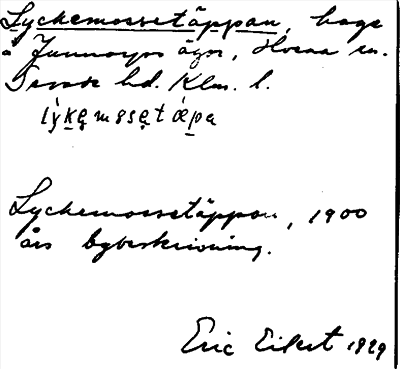 Lyckemossetäppan, hage
å Junnorps ägor, Horns sn.
hd. Klm. l.
lýkemssetǽpa
Lyckemossetäppan, 1900
års bybeskrivning.
Eric Eilert 1929